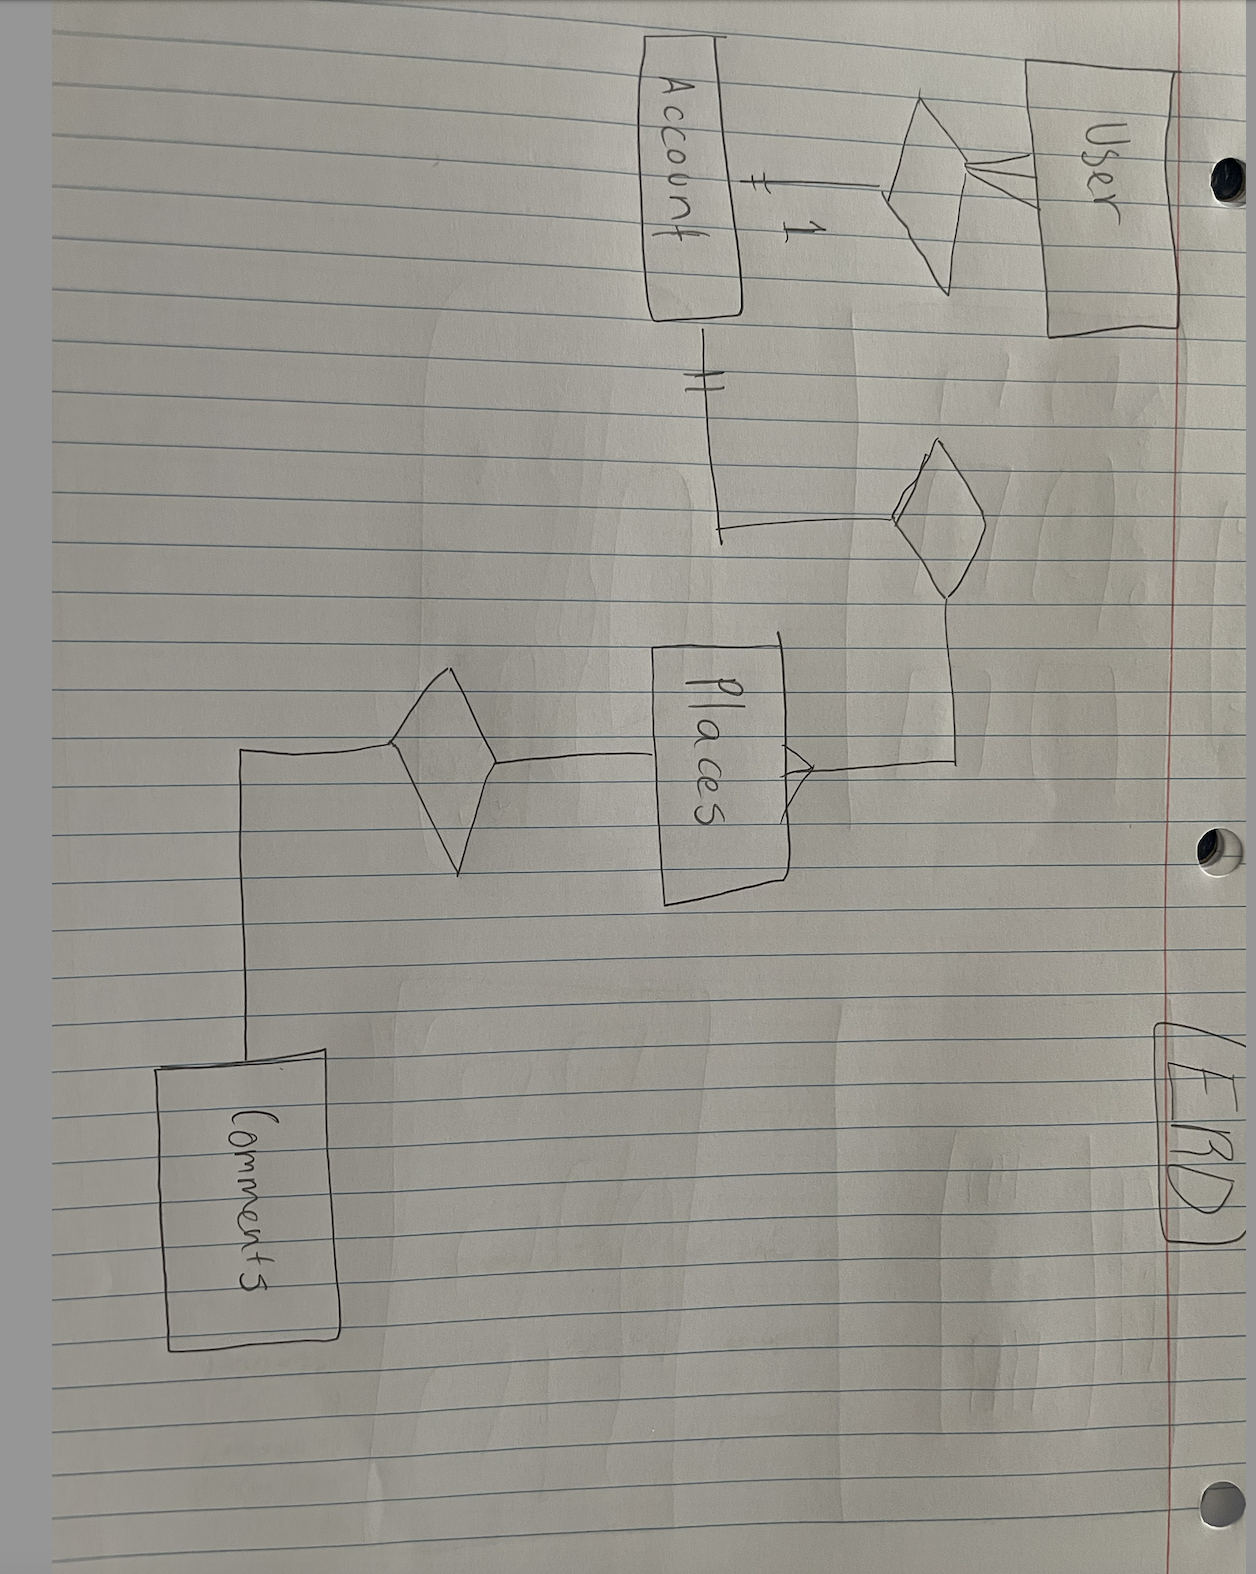 ERD
User
1
Account
Places
Comments